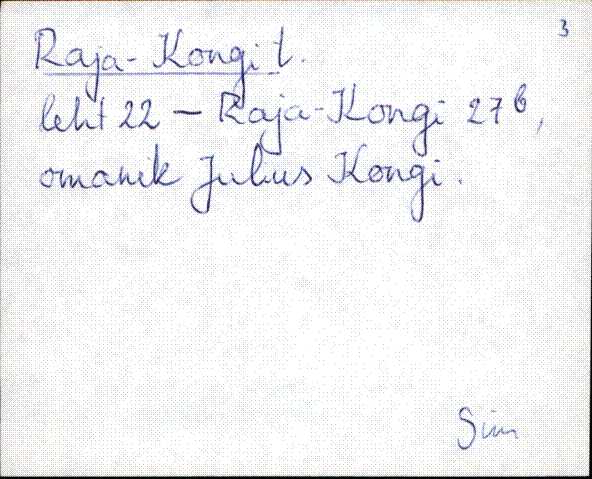 3
Raja-Kongi t.
leht 22 — Raja-Kongi 27b,
omanik Julius Kongi.
Sim